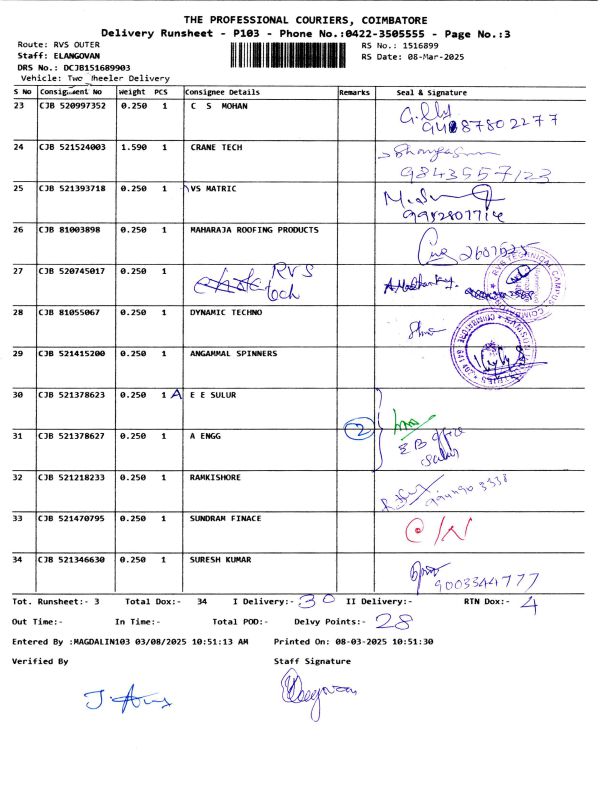 THE PROFESSIONAL COURIERS, COIMBATORE
Delivery Runsheet - P103 - Phone No.:0422-3505555 - Page No.:3
Route: RVS OUTER RS No.: 1516899
Staff: ELANGOVAN RS Date: 08-Mar-2025
DRS No.: DCJB151689903
Vehicle: Two Wheeler Delivery
S No Consignment No Weight PCS Consignee Details Remarks Seal & Signature
23 CJB 520997352 0.250 1 C S MOHAN
24 CJB 521524003 1.590 1 CRANE TECH
9843557123
25 CJB 521393718 0.250 1 VS MATRIC
26 CJB 81003898 0.250 1 MAHARAJA ROOFING PRODUCTS
27 CJB 520745017 0.250 1 RVS
28 CJB 81055067 0.250 1 DYNAMIC TECHNO
29 CJB 521415200 0.250 1 ANGAMMAL SPINNERS
30 CJB 521378623 0.250 1 A E E SULUR
2
EB office
Sulur
31 CJB 521378627 0.250 1 A ENGG
32 CJB 521218233 0.250 1 RAMKISHORE
33 CJB 521470795 0.250 1 SUNDRAM FINACE
34 CJB 521346630 0.250 1 SURESH KUMAR
9003344777
Tot. Runsheet:- 3 Total Dox:- 34 I Delivery:- 30 II Delivery:- RTN Dox:- 4
Out Time:- In Time:- Total POD:- Delvy Points:- 28
Entered By :MAGDALIN103 03/08/2025 10:51:13 AM Printed On: 08-03-2025 10:51:30
Verified By Staff Signature